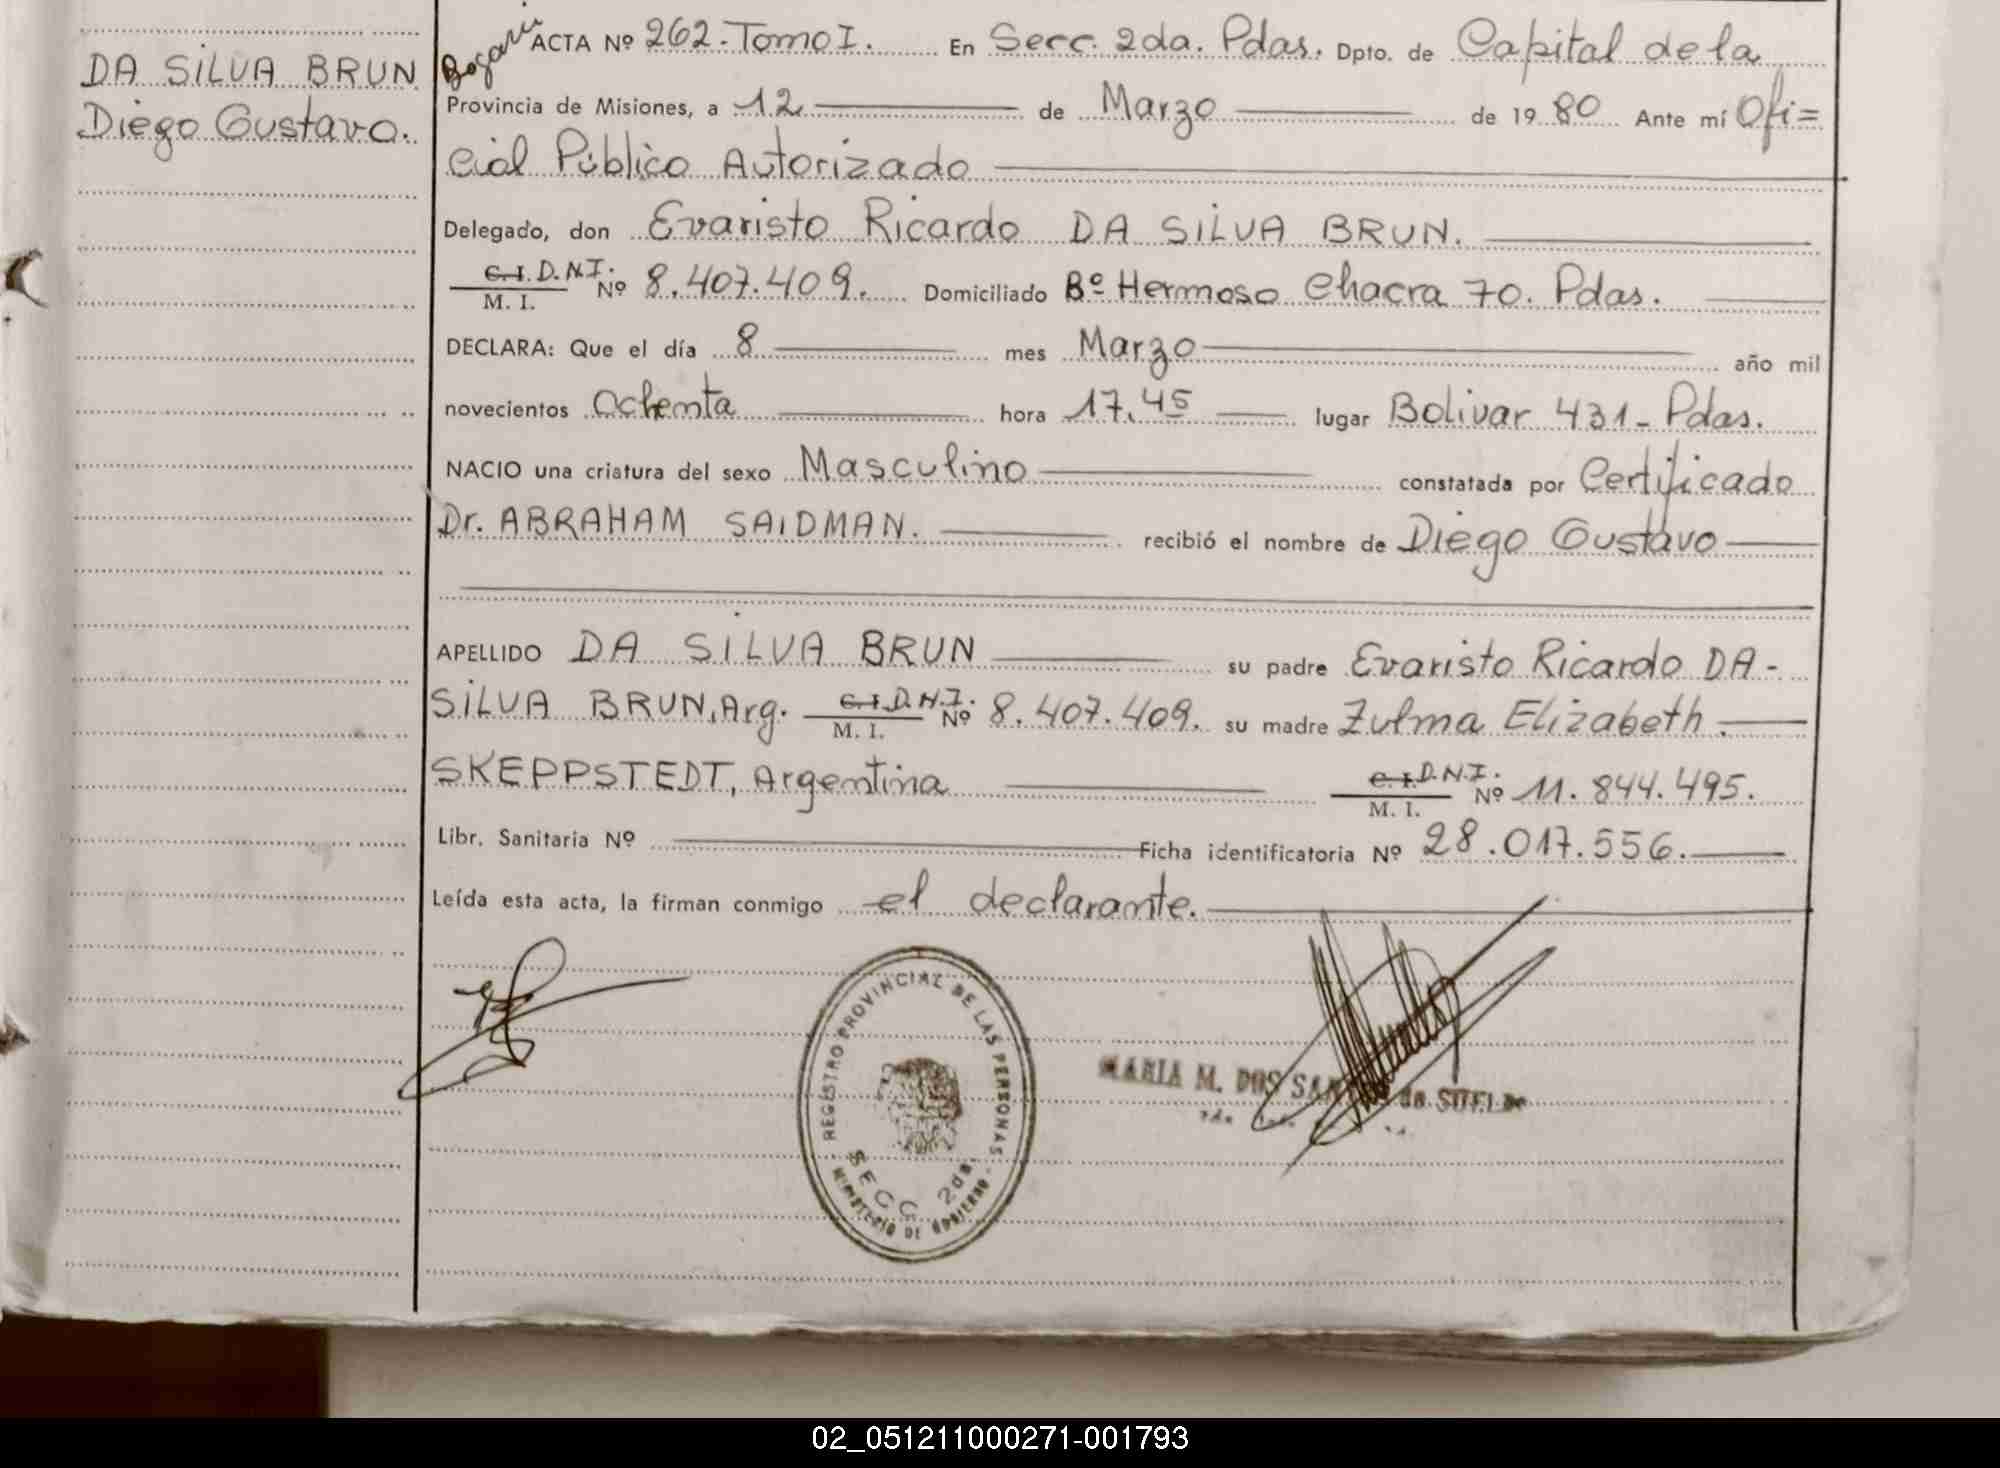 DA SILVA BRUN
Diego Gustavo.
ACTA Nº 262.Tomo I. En Secc. 2da. Pdas. Dpto. de Capital de la
Provincia de Misiones, a 12 de Marzo de 1980 Ante mí Ofi=
cial Público Autorizado
Delegado, don Evaristo Ricardo DA SILVA BRUN.
C.I. D.N.I. Nº 8.407.409. Domiciliado Bº Hermoso Chacra 70. Pdas.
M. I.
DECLARA: Que el día 8 mes Marzo año mil
novecientos ochenta hora 17.45 lugar Bolivar 431- Pdas.
NACIO una criatura del sexo Masculino constatada por Certificado
Dr. ABRAHAM SAIDMAN. recibió el nombre de Diego Gustavo
APELLIDO DA SILVA BRUN su padre Evaristo Ricardo DA-
SILVA BRUN, Arg. C.I. D.N.I. Nº 8.407.409. su madre Zulma Elizabeth
M. I.
SKEPPSTEDT, Argentina C.I. D.N.I. Nº 11.844.495.
M. I.
Libr. Sanitaria Nº Ficha identificatoria Nº 28.017.556.
Leída esta acta, la firman conmigo el declarante.
REGISTRO PROVINCIAL DE LAS PERSONAS
SECC. 2da.
MINISTERIO DE GOBIERNO
MARIA M. DOS SANTOS de
02_051211000271-001793